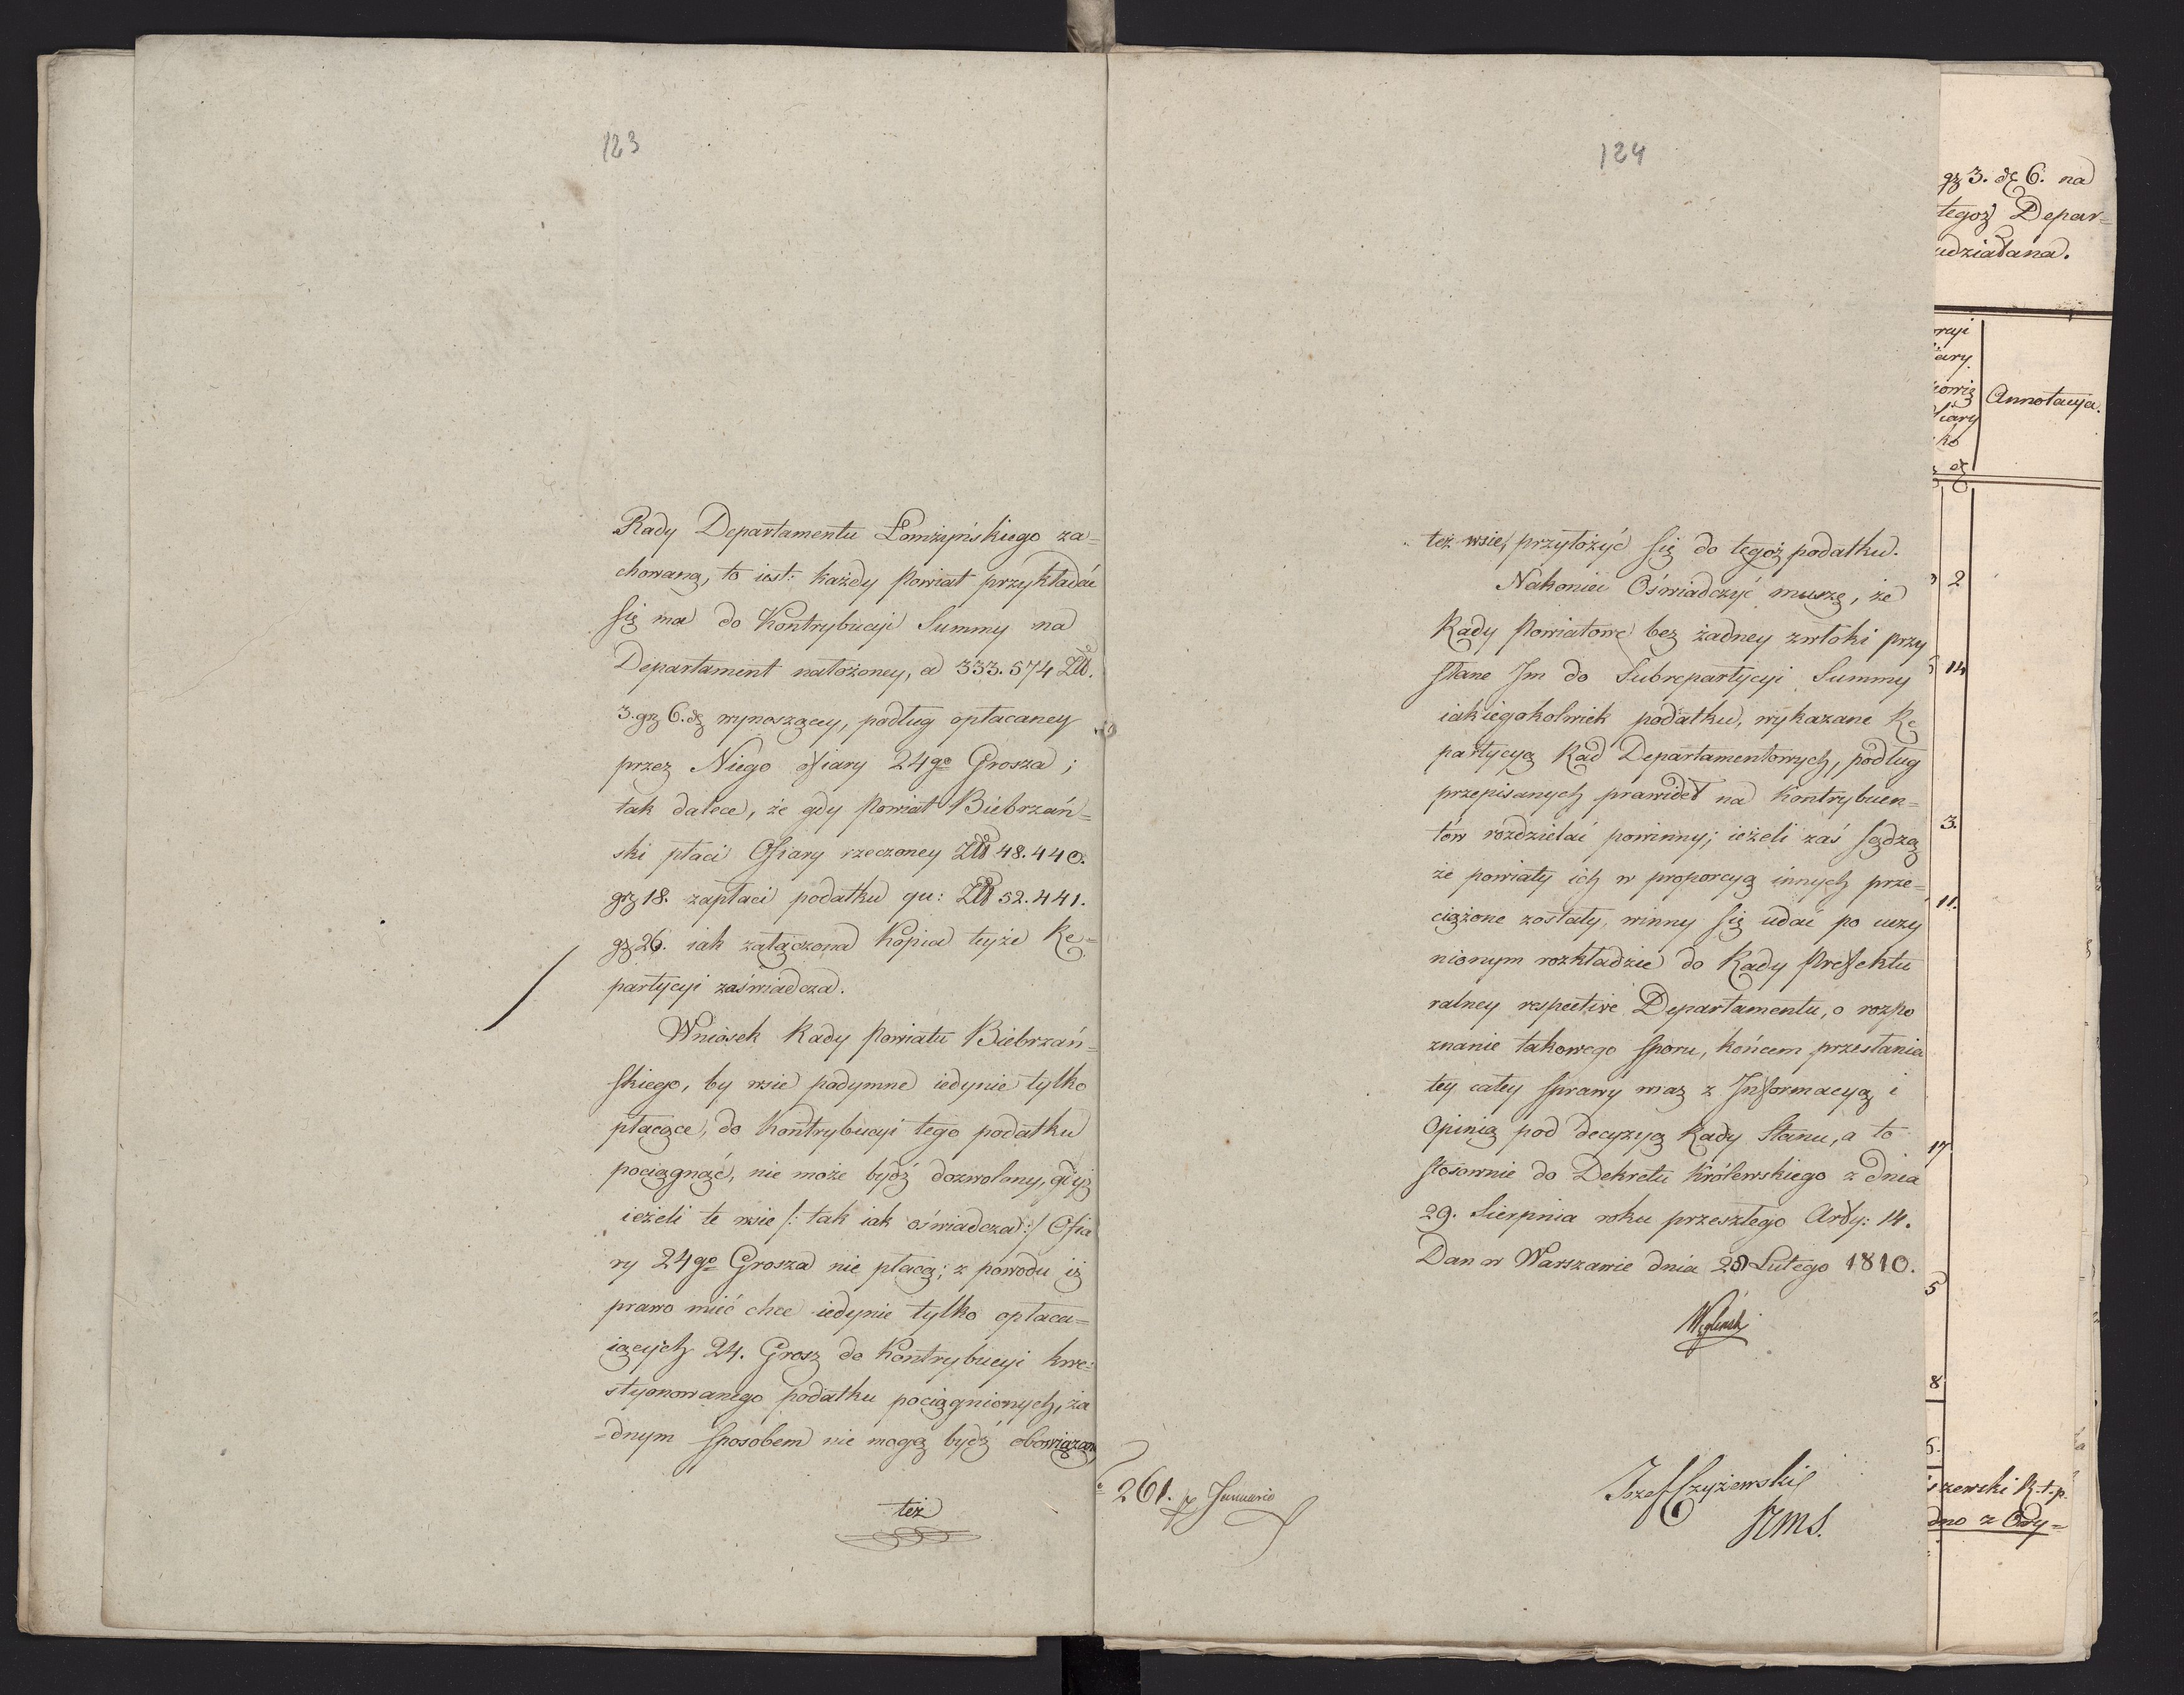 123
Rady Departamentu Łomżyńskiego za=
chowaną, to iest: każdy Powiat przykładać
się ma do Kontrybucyi Summy na
Departament nałożoney, a 333.574 Złł.
3. gz 6. d wynoszącey, podług opłacaney
przez Niego ofiary 24go Grosza;
tak dalece, że gdy Powiat Biebrzań=
ski płaci Ofiary rzeczoney Złł 48.440.
grz 18. zapłaci podatku qu: Złł 52.441.
gz 26. iak załączona Kopia teyże Re=
partycyi zaświadcza.
Wniosek Rady Powiatu Biebrzań=
skiego, by wsie podymne iedynie tylko
płacące, do Kontrybucyi tego podatku
pociągnąć, nie może bydź dozwolony, gdyż
ieżeli te wsie /: tak iak oświadcza :/ Ofia
ry 24go Grosza nie płacą; z powodu iż
prawo mieć chce iedynie tylko opłaca=
iących 24. Grosz do Kontrybucyi kwe=
styonowanego podatku pociągnionych, ża
=dnym sposobem nie mogą bydź obowiązane
też
124
też wsie, przyłożyć się do tegoż podatku.
Nakoniec Oświadczyć muszę, że
Rady Powiatowe bez żadney zwłoki przy
słane Im do Subrepartycyi Summy
iakiegokolwiek podatku, wykazane Re
partycyą Rad Departamentowych, podług
przepisanych prawideł na Kontrybuen=
tów rozdzielać powinny; ieżeli zaś sądzą
że powiaty ich w proporcyą innych prze=
ciążone zostały, winny się udać po uczy
nionym rozkładzie do Rady Prefektu
ralney respective Departamentu, o rozpo
znanie takowego sporu, końcem przesłania
tey całey sprawy wraz z Informacyą i
Opinią pod decyzyą Rady Stanu, a to
stosownie do Dekretu Królewskiego z dnia
29. Sierpnia roku przeszłego Arty: 14.
Dan w Warszawie dnia Lutego 1810.
Węgleński
261. Januario
Jozef Czyżewski
gz 3. d 6. na
tegoż Depar=
udziałana.
Annotacya.
2
14
3.
11.
17
5
8
6.
zewski R.t.p.
dno z Ory=